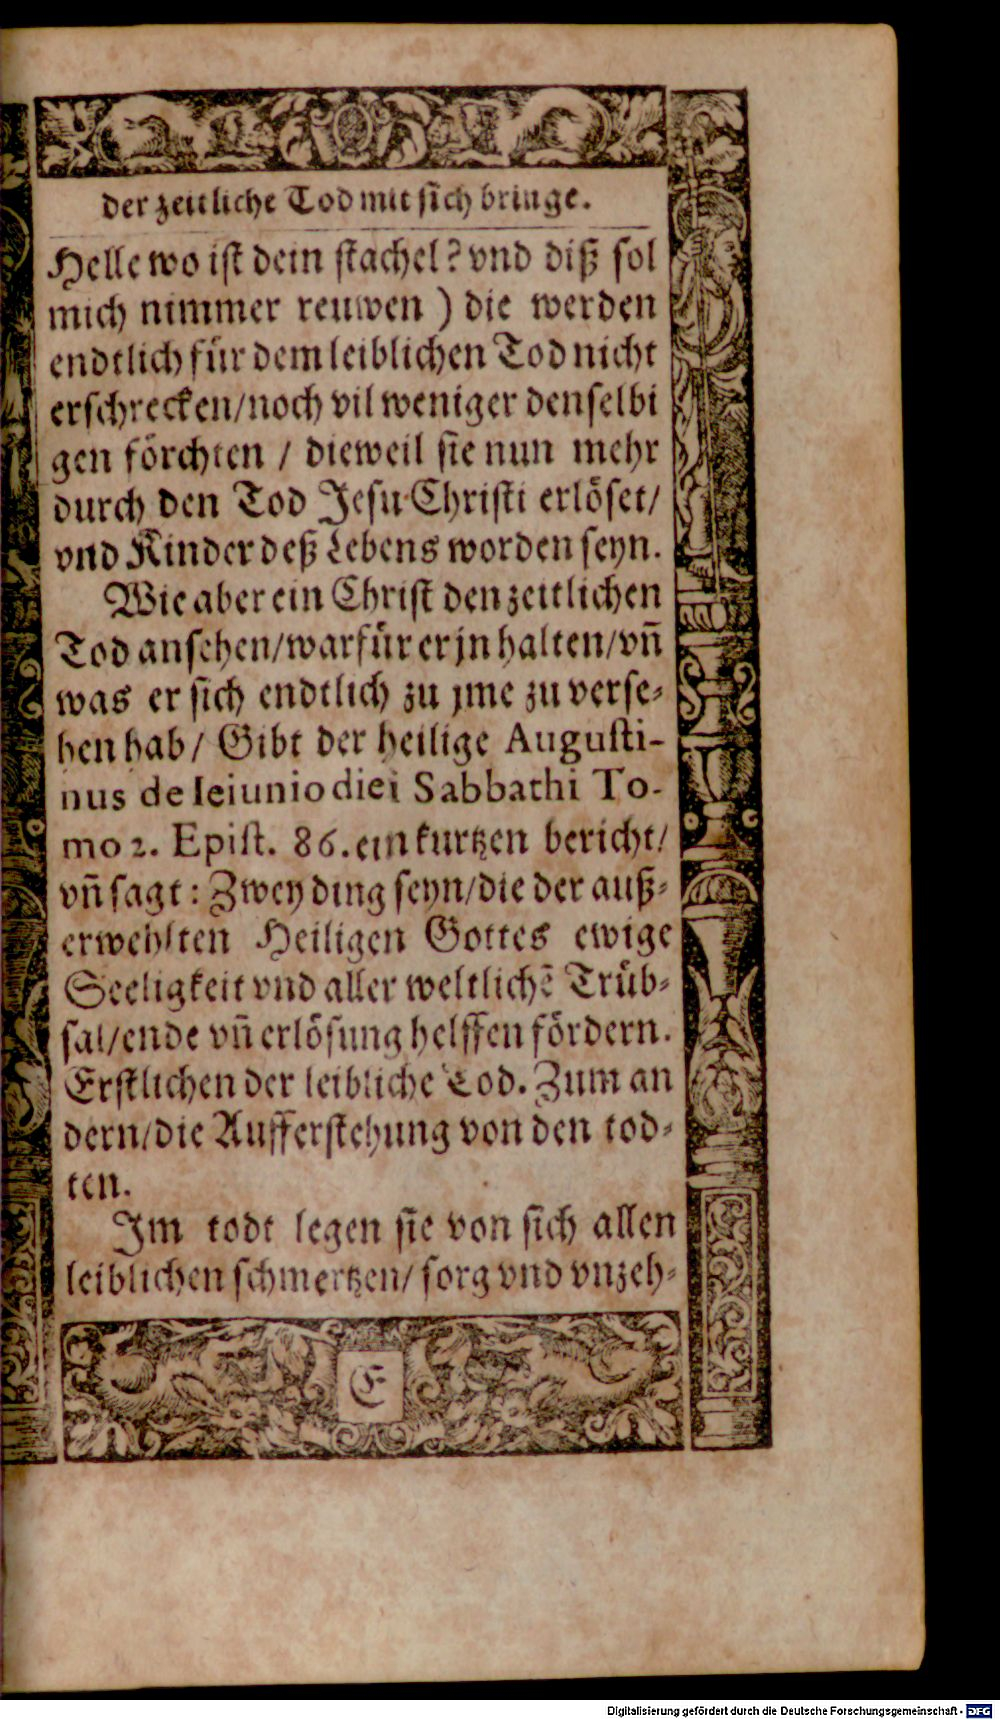 der zeitliche Tod mit sich bringe.
Helle wo ist dein stachel? vnd diß sol
mich nimmer reuwen ) die werden
endtlich für dem leiblichen Tod nicht
erschrecken/noch vil weniger denselbi
gen förchten / dieweil sie nun mehr
durch den Tod Jesu Christi erlöset/
vnd Kinder deß Lebens worden seyn.
Wie aber ein Christ den zeitlichen
Tod ansehen/warfür er jn halten/vñ
was er sich endtlich zu jme zu verse-
hen hab/ Gibt der heilige Augusti-
nus de Ieiunio diei Sabbathi To-
mo 2. Epist. 86. ein kurtzen bericht/
vñ sagt: Zwey ding seyn/die der auß-
erwehlten Heiligen Gottes ewige
Seeligkeit vnd aller weltlichẽ Trüb-
sal/ende vñ erlösung helffen fördern.
Erstlichen der leibliche Tod. Zum an
dern/die Aufferstehung von den tod-
ten.
Im todt legen sie von sich allen
leiblichen schmertzen/ sorg vnd vnzeh-
E
Digitalisierung gefördert durch die Deutsche Forschungsgemeinschaft - DFG